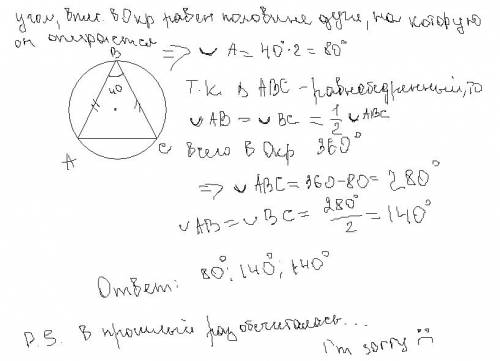 угол, впис. в Окр равен половине дуги, на которую
он опирается => ◡ A = 40° · 2 = 80°
B
40
A
C
Т.к. Δ ABC - равнобедренный, то
◡ AB = ◡ BC = 1/2 ◡ ABC
Всего в Окр 360°
=> ◡ ABC = 360 - 80 = 280°
◡ AB = ◡ BC = 280°/2 = 140°
Ответ: 80°; 140°; 140°
P.S. в прошлый раз обсчиталась...
I'm sorry